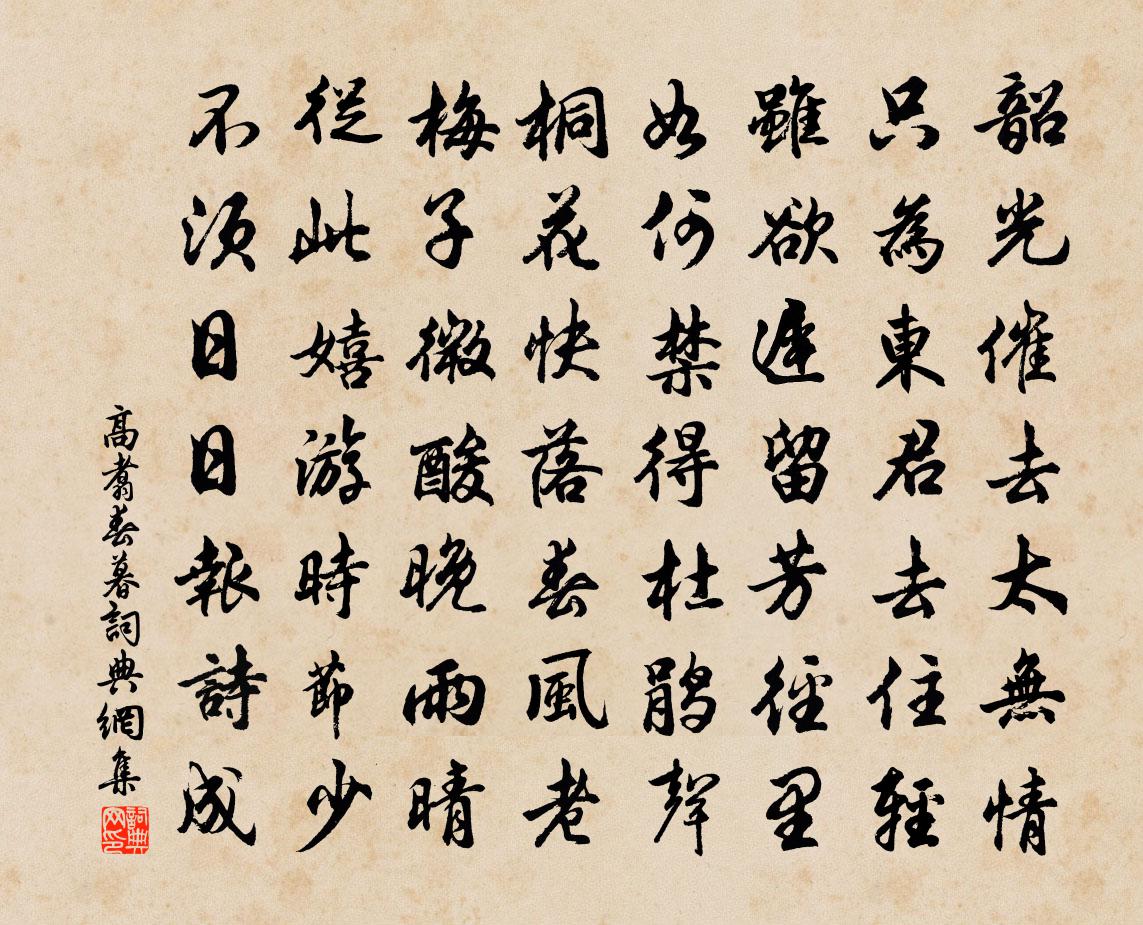 韶光催去太無情
只為東君去住輕
雖欲遲留芳徑里
如何禁得杜鵑聲
桐花快落春風老
梅子微酸晚雨晴
從此嬉游時節少
不須日日報詩成
高翥春暮詞典網集
詞典網印